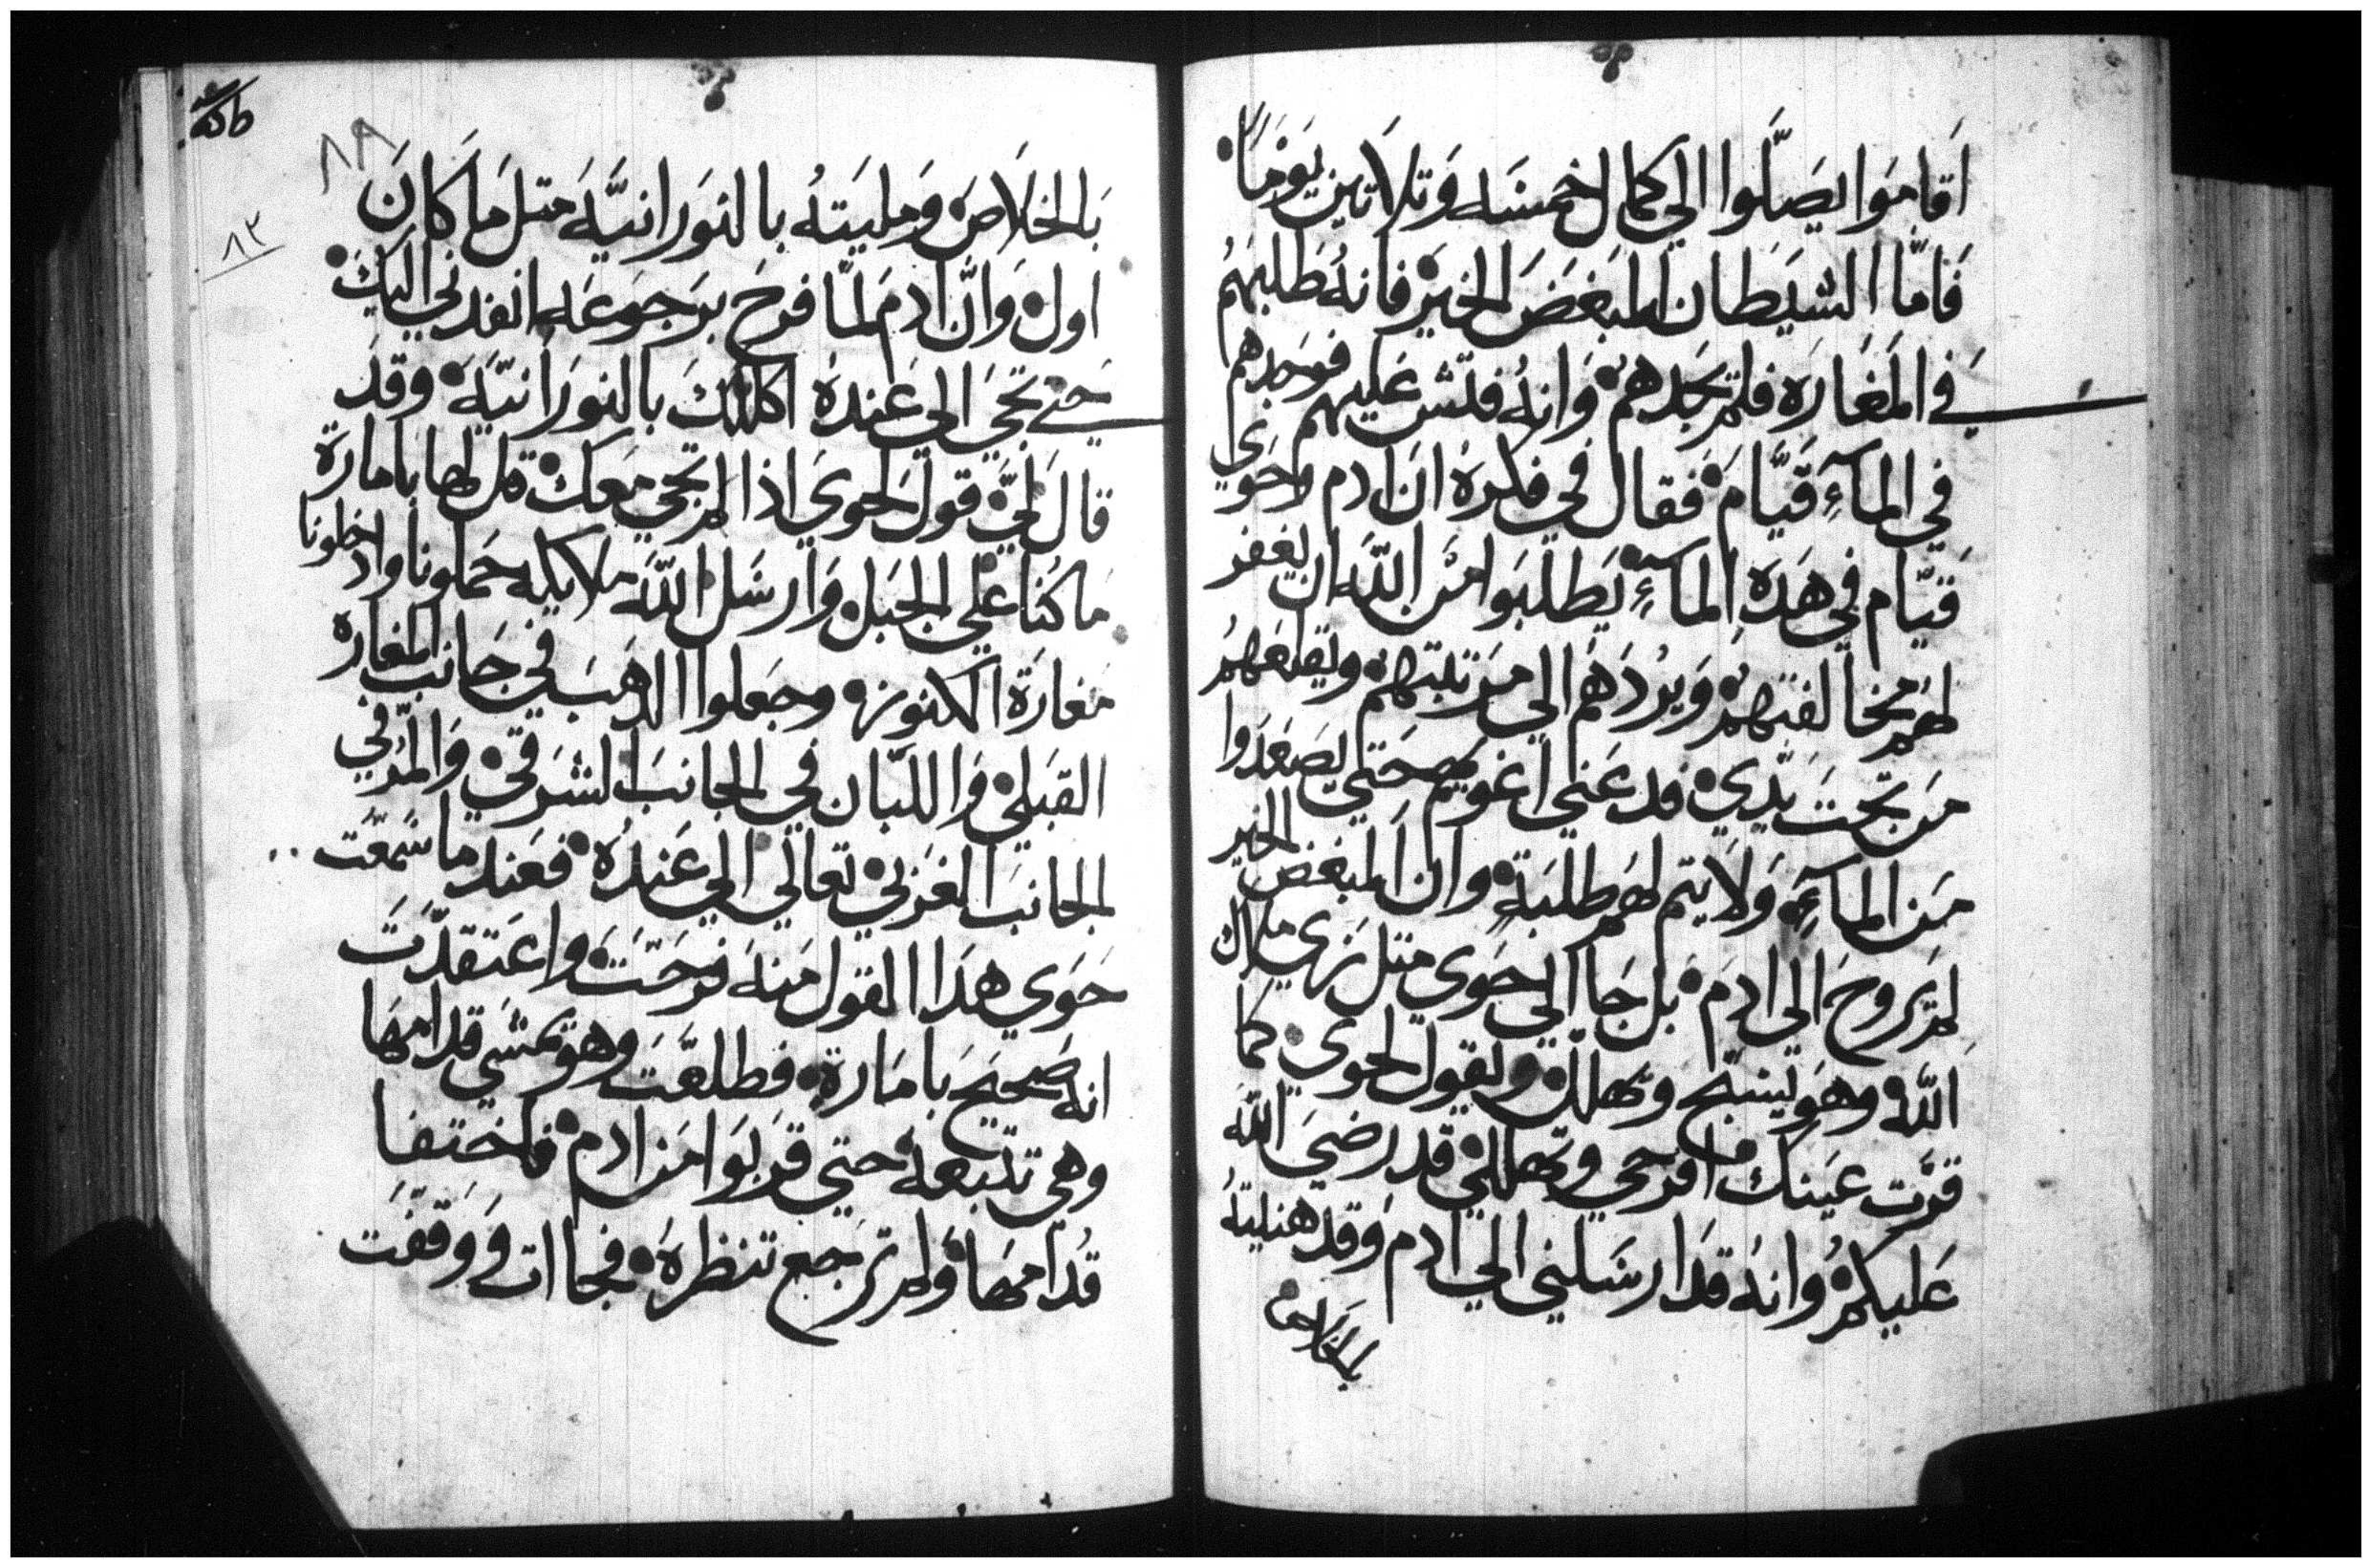 اَقامَوا يصَلَّوا الي كمال خمسَه وَتلاَتين يَوْمَاً
فَامَّا الشيَطان المبَغضَ الخيرَ فانهُ طلبَهُم
في المغَارَه فلم يجَدهم وَانهُ فتش عَليهم فوجدهم
في المآءِ قيَّام فقال في فكرهُ انَ ادم وحَوي
قيَّام في هَدَه المآءِ يَطلبَوا منَ اللَّه ان يغفر
لهم مخالفتهم وَيرُدَهُم الي مرَتبتهم ويقلعَهُم
منَ تحَتَ يدَّي قدعَني اغويهم حَتي يصَعَدَوا
منَ المآءِ وَلا يتم لهم طلبَةٍ وان المبغض الخير
لم يروحَ الي ادمَ بل جَا الي حَوي متل زي ملاك
اللَّه وهوَ يسَبَّح ويهَلل ويقول لحوي كما
قرَّت عَينك افرَحَي وتهَللي قد رضيَ اللَّه
عَليكم وانهُ قدَ ارسَلني الي ادم وَقد هنليتهُ
بالخلاص
٨٩
٨٢
بَالخلاَصَ وَمليَتهُ بالنوَرانيَّه متل مَا كانَ
اول وَانَّ ادم لمَّا فرحَ برَجوَعَه انفدني اليكَ
حَتي تجَيَ الي عَندهُ اكللك بالنورَانيَّه وقدَ
قالَ ليَّ قول لحوي اذا لم تجي مَعك قل لها بامارة
ما كُنا علي الجَبل وَارسَل اللَّه ملايكه حَملونا وادخلونا
مَغارَة الكنوز وجَعلوا الدهَبَ في جَانب المغاره
القبَلي وَاللبَّان في الجانبَ الشرَقي وَالمرُّ في
الجانبَ الغرَبي تعالَي الي عَندهُ فعَندما سَمعَت
حَوَي هدَا القول منهَ فرحَتَ واعَتقدَّتَ
انه صَحيحَ بامَارة فطلعَتَ وهوَ يمشَي قدامهَا
وهي تتبعهُ حَتي قرَبوَا منَ ادم فاختفا
قُدامهَا وَلم ترَجع تنظرهُ فجاات وَوقفَت